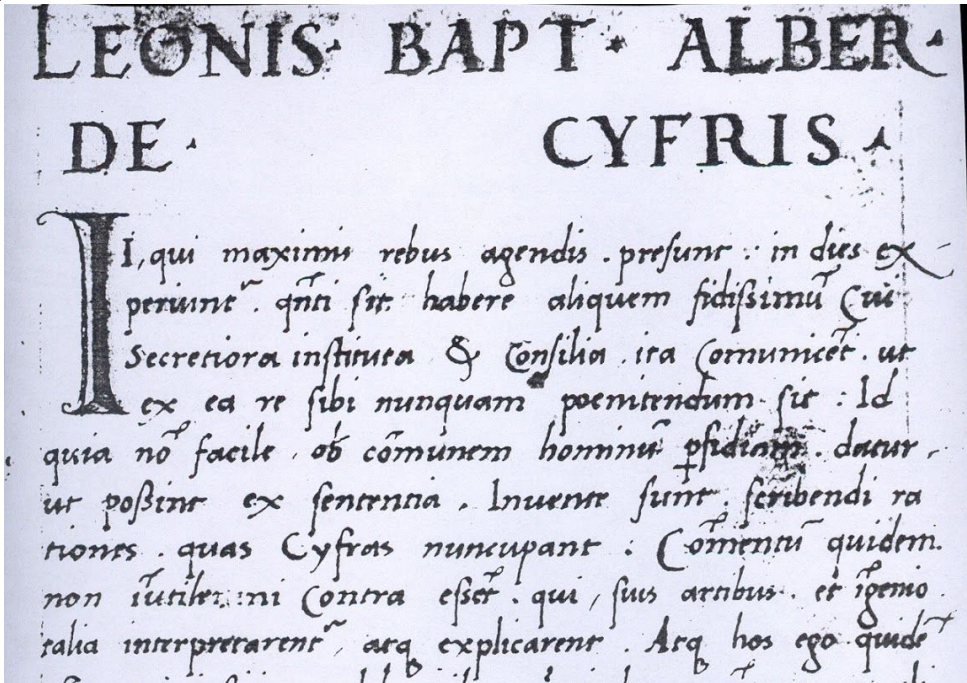 LEONIS· BAPT· ALBER·
DE· CYFRIS·
II, qui maximis rebus agendis . presunt : in dies ex-
periunt᷑ . qñti sit habere aliquem fidissimū Cui
Secretiora instituta & Consilia . ita Comunicēt . ut
ex ea re sibi nunquam poenitendum sit : Id
quia nō facile . ob cōmunem hominū ꝑfidiam . datur,
ut possint ex sententia . Invente sunt . scribendi ra
tiones . quas Cyfras nuncupant : Cōmentū quidem
non īutile : ni Contra essēt . qui , suis artibus . et īgenio
talia interpretarent᷑ , atq explicarent . Atq hos ego quidē